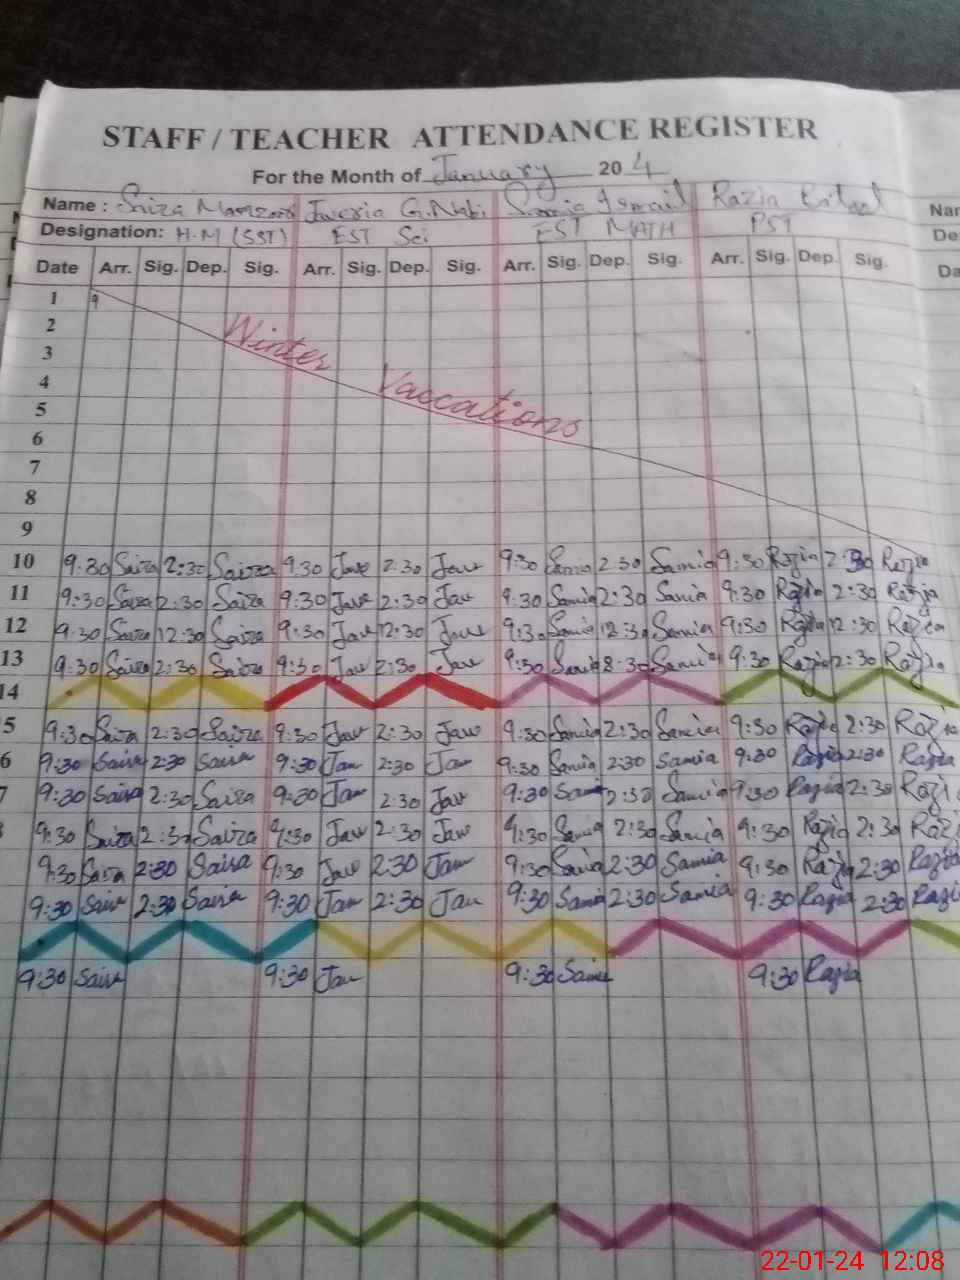 STAFF / TEACHER ATTENDANCE REGISTER
For the Month of January 20 4
Name : Saiza Javeria G.Nabi Samia Ismail Razia Nar
Designation: H.M (SST) EST Sci EST MATH PST De
Date Arr. Sig. Dep. Sig. Arr. Sig. Dep. Sig. Arr. Sig. Dep. Sig. Arr. Sig. Dep. Sig. Da
1 9
2 Winter
3
4 Vaccations
5
6
7
8
9
10 9:30 Saiza 2:30 Saiza 9:30 Jave 2:30 Jave 9:30 Samia 2:30 Samia 9:30 Razia 2:30 Razia
11 9:30 Saiza 2:30 Saiza 9:30 Jave 2:30 Jav 9:30 Samia 2:30 Samia 9:30 Razia 2:30 Razia
12 9:30 Saiza 12:30 Saiza 9:30 Jav 12:30 Jave 9:30 Samia 12:30 Samia 9:30 Razia 12:30 Razia
13 9:30 Saiza 2:30 Saiza 9:30 Jav 2:30 Jav 9:30 Samia 2:30 Samia 9:30 Razia 2:30 Razia
14
5 9:30 Saiza 2:30 Saiza 9:30 Jav 2:30 Jav 9:30 Samia 2:30 Samia 9:30 Razia 2:30 Razia
6 9:30 Saiza 2:30 Saiza 9:30 Jav 2:30 Jav 9:30 Samia 2:30 Samia 9:30 Razia 2:30 Razia
7 9:30 Saiza 2:30 Saiza 9:30 Jav 2:30 Jav 9:30 Sami 2:30 Samia 9:30 Razia 2:30 Razi
9:30 Saiza 2:30 Saiza 9:30 Jav 2:30 Jav 9:30 Samia 2:30 Samia 9:30 Razia 2:30 Razi
9:30 Saiza 2:30 Saiza 9:30 Jav 2:30 Jav 9:30 Samia 2:30 Samia 9:30 Razia 2:30 Razia
9:30 Saiz 2:30 Saiza 9:30 Jav 2:30 Jav 9:30 Samia 2:30 Samia 9:30 Razia 2:30 Razi
9:30 Saiz 9:30 Jav 9:30 Samia 9:30 Razia
22-01-24 12:08